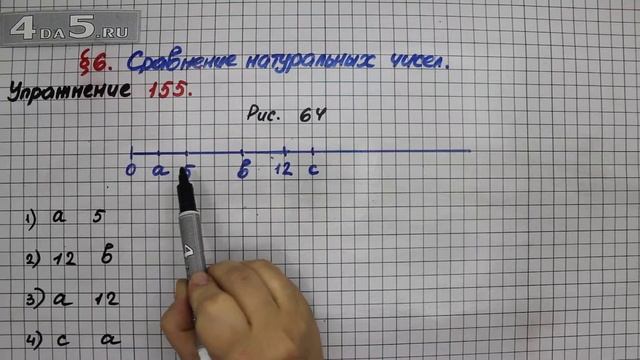 4DA5.RU
§6. Сравнение натуральных чисел.
Упражнение 155.
Рис. 64
0 a 5 b 12 c
1) a 5
2) 12 b
3) a 12
4) c a